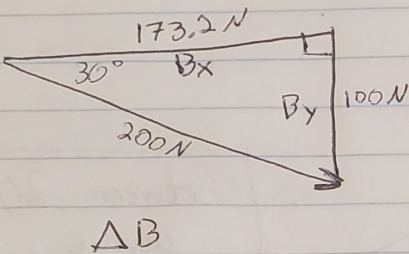 173.2N
30° Bx
By 100N
200N
ΔB